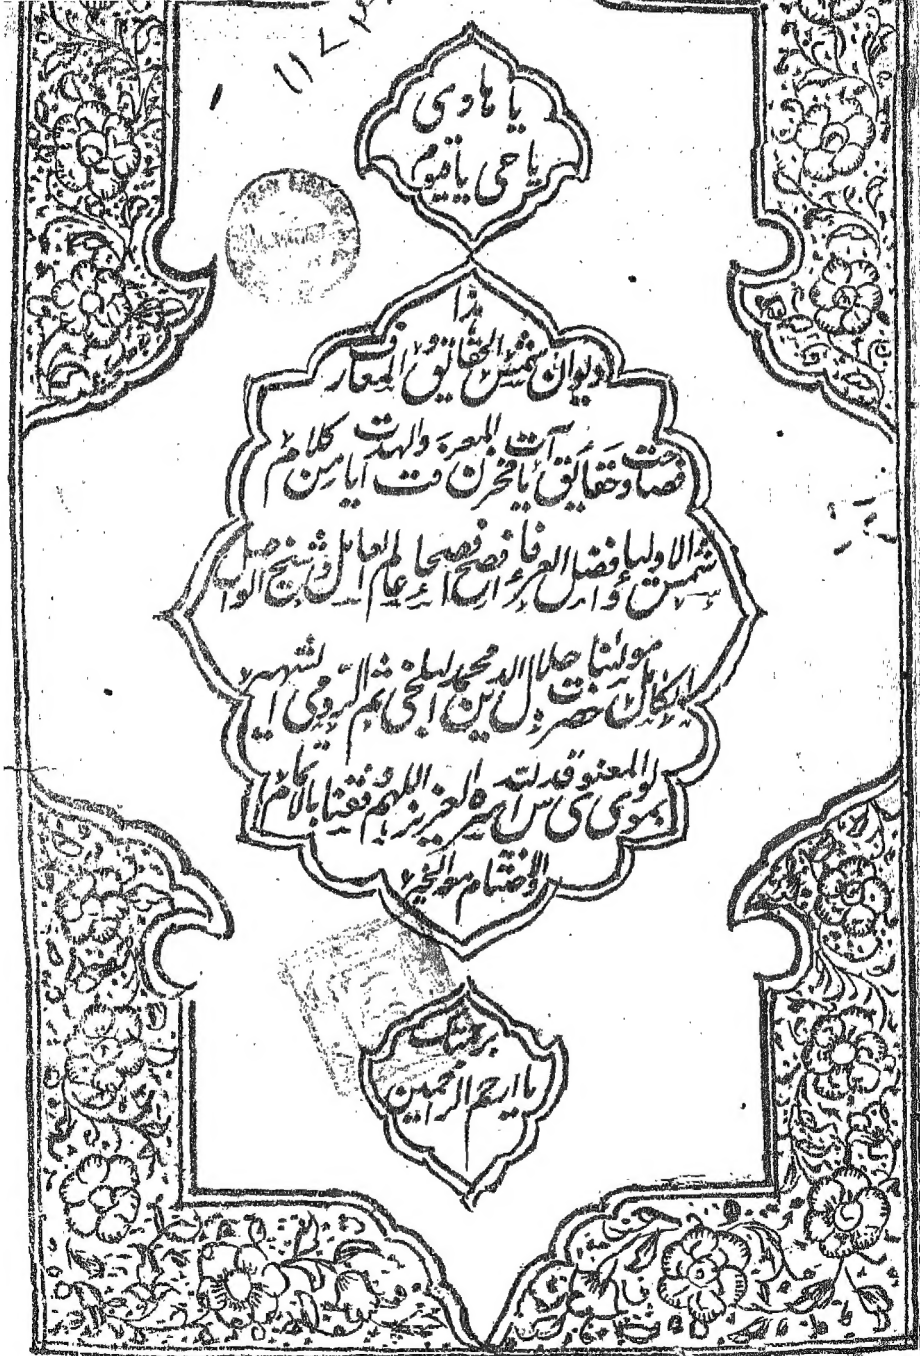 یا هادی
یا حی یا قیوم
هذا
دیوان شمس الحقائق و المعارف
فصاحت و حقایق آیات مخزن المعرفت و الهدایت من کلام
شمس الاولیا و افضل العرفا افصح فصحا عالم العامل و شیخ الواصل
الکامل مولینا حضرت جلال الدین محمد البلخی ثم الرومی الشهیر
بمولوی المعنوی قدس الله سره العزیز اللهم وفقنا بالاتمام
والاختتام هو الخیر
برحمتک
یا ارحم الراحمین